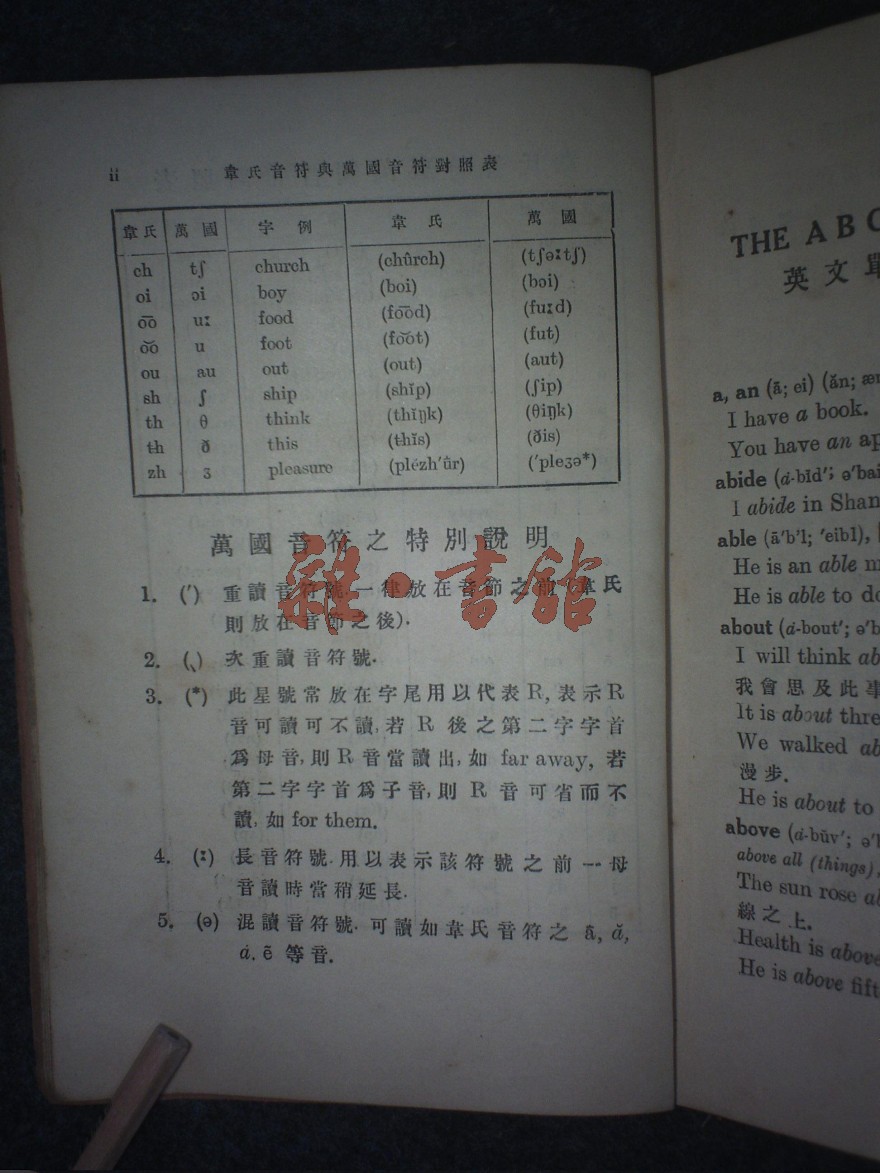 ii 韋氏音符與萬國音符對照表
韋氏 萬國 字例 韋氏 萬國
ch tʃ church (chûrch) (tʃəːtʃ)
oi ɔi boy (boi) (bɔi)
o͞o uː food (fo͞od) (fuːd)
o͝o u foot (fo͝ot) (fut)
ou au out (out) (aut)
sh ʃ ship (shĭp) (ʃip)
th θ think (thĭŋk) (θiŋk)
th ð this (thĭs) (ðis)
zh ʒ pleasure (plézh′ûr) (′pleʒə*)
萬國音符之特別說明
1. (′) 重讀音符號·一律放在音節之前 韋氏
則放在音節之後).
2. (ˎ) 次重讀音符號·
3. (*) 此星號常放在字尾用以代表R, 表示R
音可讀可不讀, 若 R 後之第二字字首
爲母音, 則R音當讀出, 如 far away, 若
第二字字首爲子音, 則 R 音可省而不
讀, 如 for them.
4. (ː) 長音符號·用以表示該符號之前一母
音讀時當稍延長.
5. (ə) 混讀音符號·可讀如韋氏音符之 ā, ă,
ȧ, ẽ 等音.
雜·書館
THE ABC
英文單
a, an (ā; ei) (ăn; æn
I have a book.
You have an ap
abide (ȧ-bīd′; ə′bai
I abide in Shan
able (ā′b'l; ′eibl),
He is an able m
He is able to do
about (ȧ-bout′; ə′b
I will think ab
我會思及此事
It is about thre
We walked ab
漫步.
He is about to
above (ȧ-bŭv′; ə′b
above all (things),
The sun rose ab
線之上.
Health is above
He is above fift